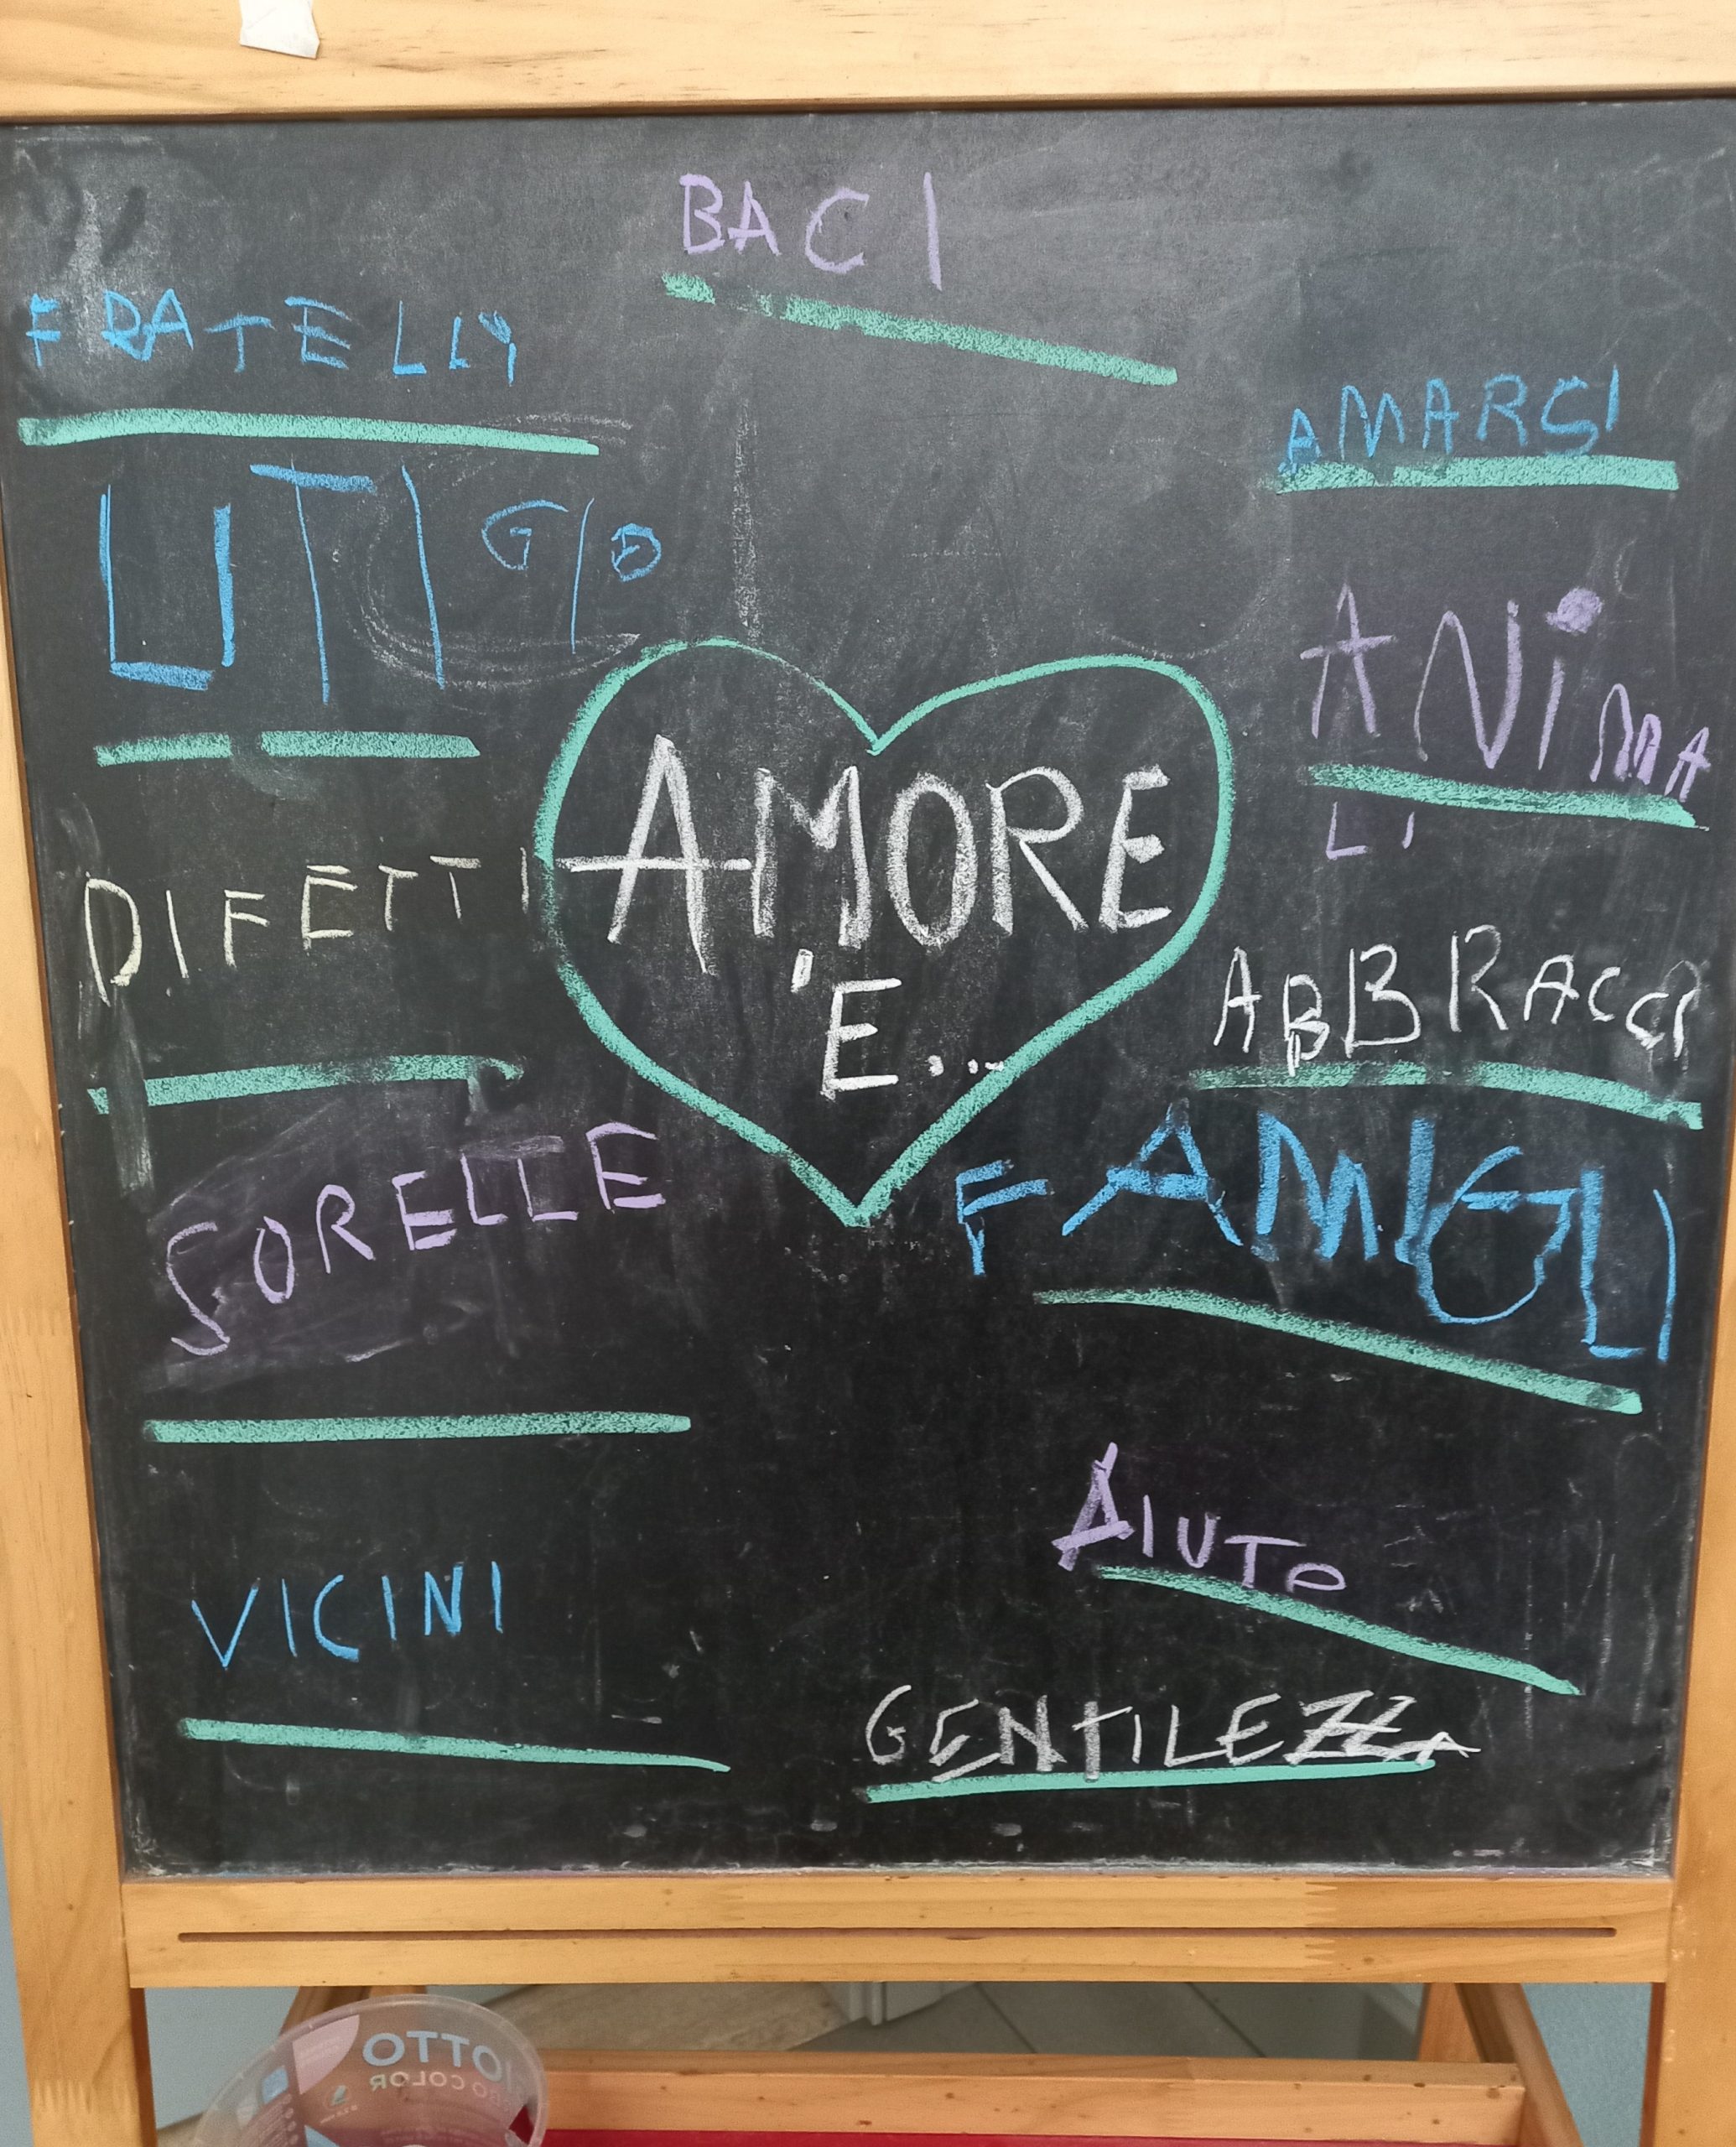 BACI
FRATELLI
AMARSI
LITIGIO
ANiMA
LI
AMORE
'E...
DIFETTI
ABBRACCI
SORELLE
FAMIGLI
AIUTO
VICINI
GENTILEZZA
OTTO
COLOR